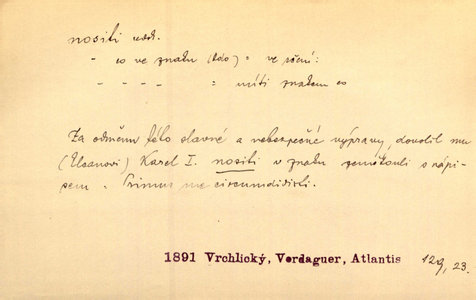 nositi ned.
" co ve znaku (kdo) = ve rčení:
" - - - = míti znakem co
Za odměnu této slavné a nebezpečné výpravy, dovolil mu
(Elcanovi) Karel I. nositi v znaku zeměkouli s nápi-
sem. Primus me circumdidisti.
1891 Vrchlický, Verdaguer, Atlantis 129, 23.